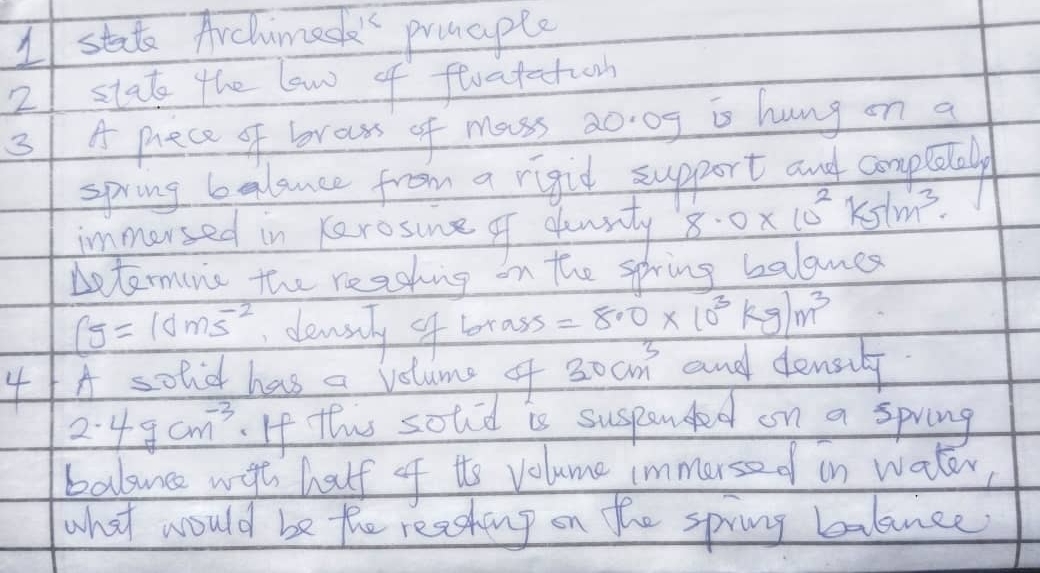 1 state Archimede's principle
2 state the law of floatation
3 A piece of brass of mass 20.0g is hung on a
spring balance from a rigid support and completely
immersed in kerosine of density 8.0 x 10² Kg/m³.
Determine the reading on the spring balance
(g = 10ms⁻², density of brass = 8.0 x 10³ kg/m³
4 A solid has a volume of 30cm³ and density
2.4g cm⁻³. If this solid is suspended on a spring
balance with half of its volume immersed in water,
what would be the reading on the spring balance